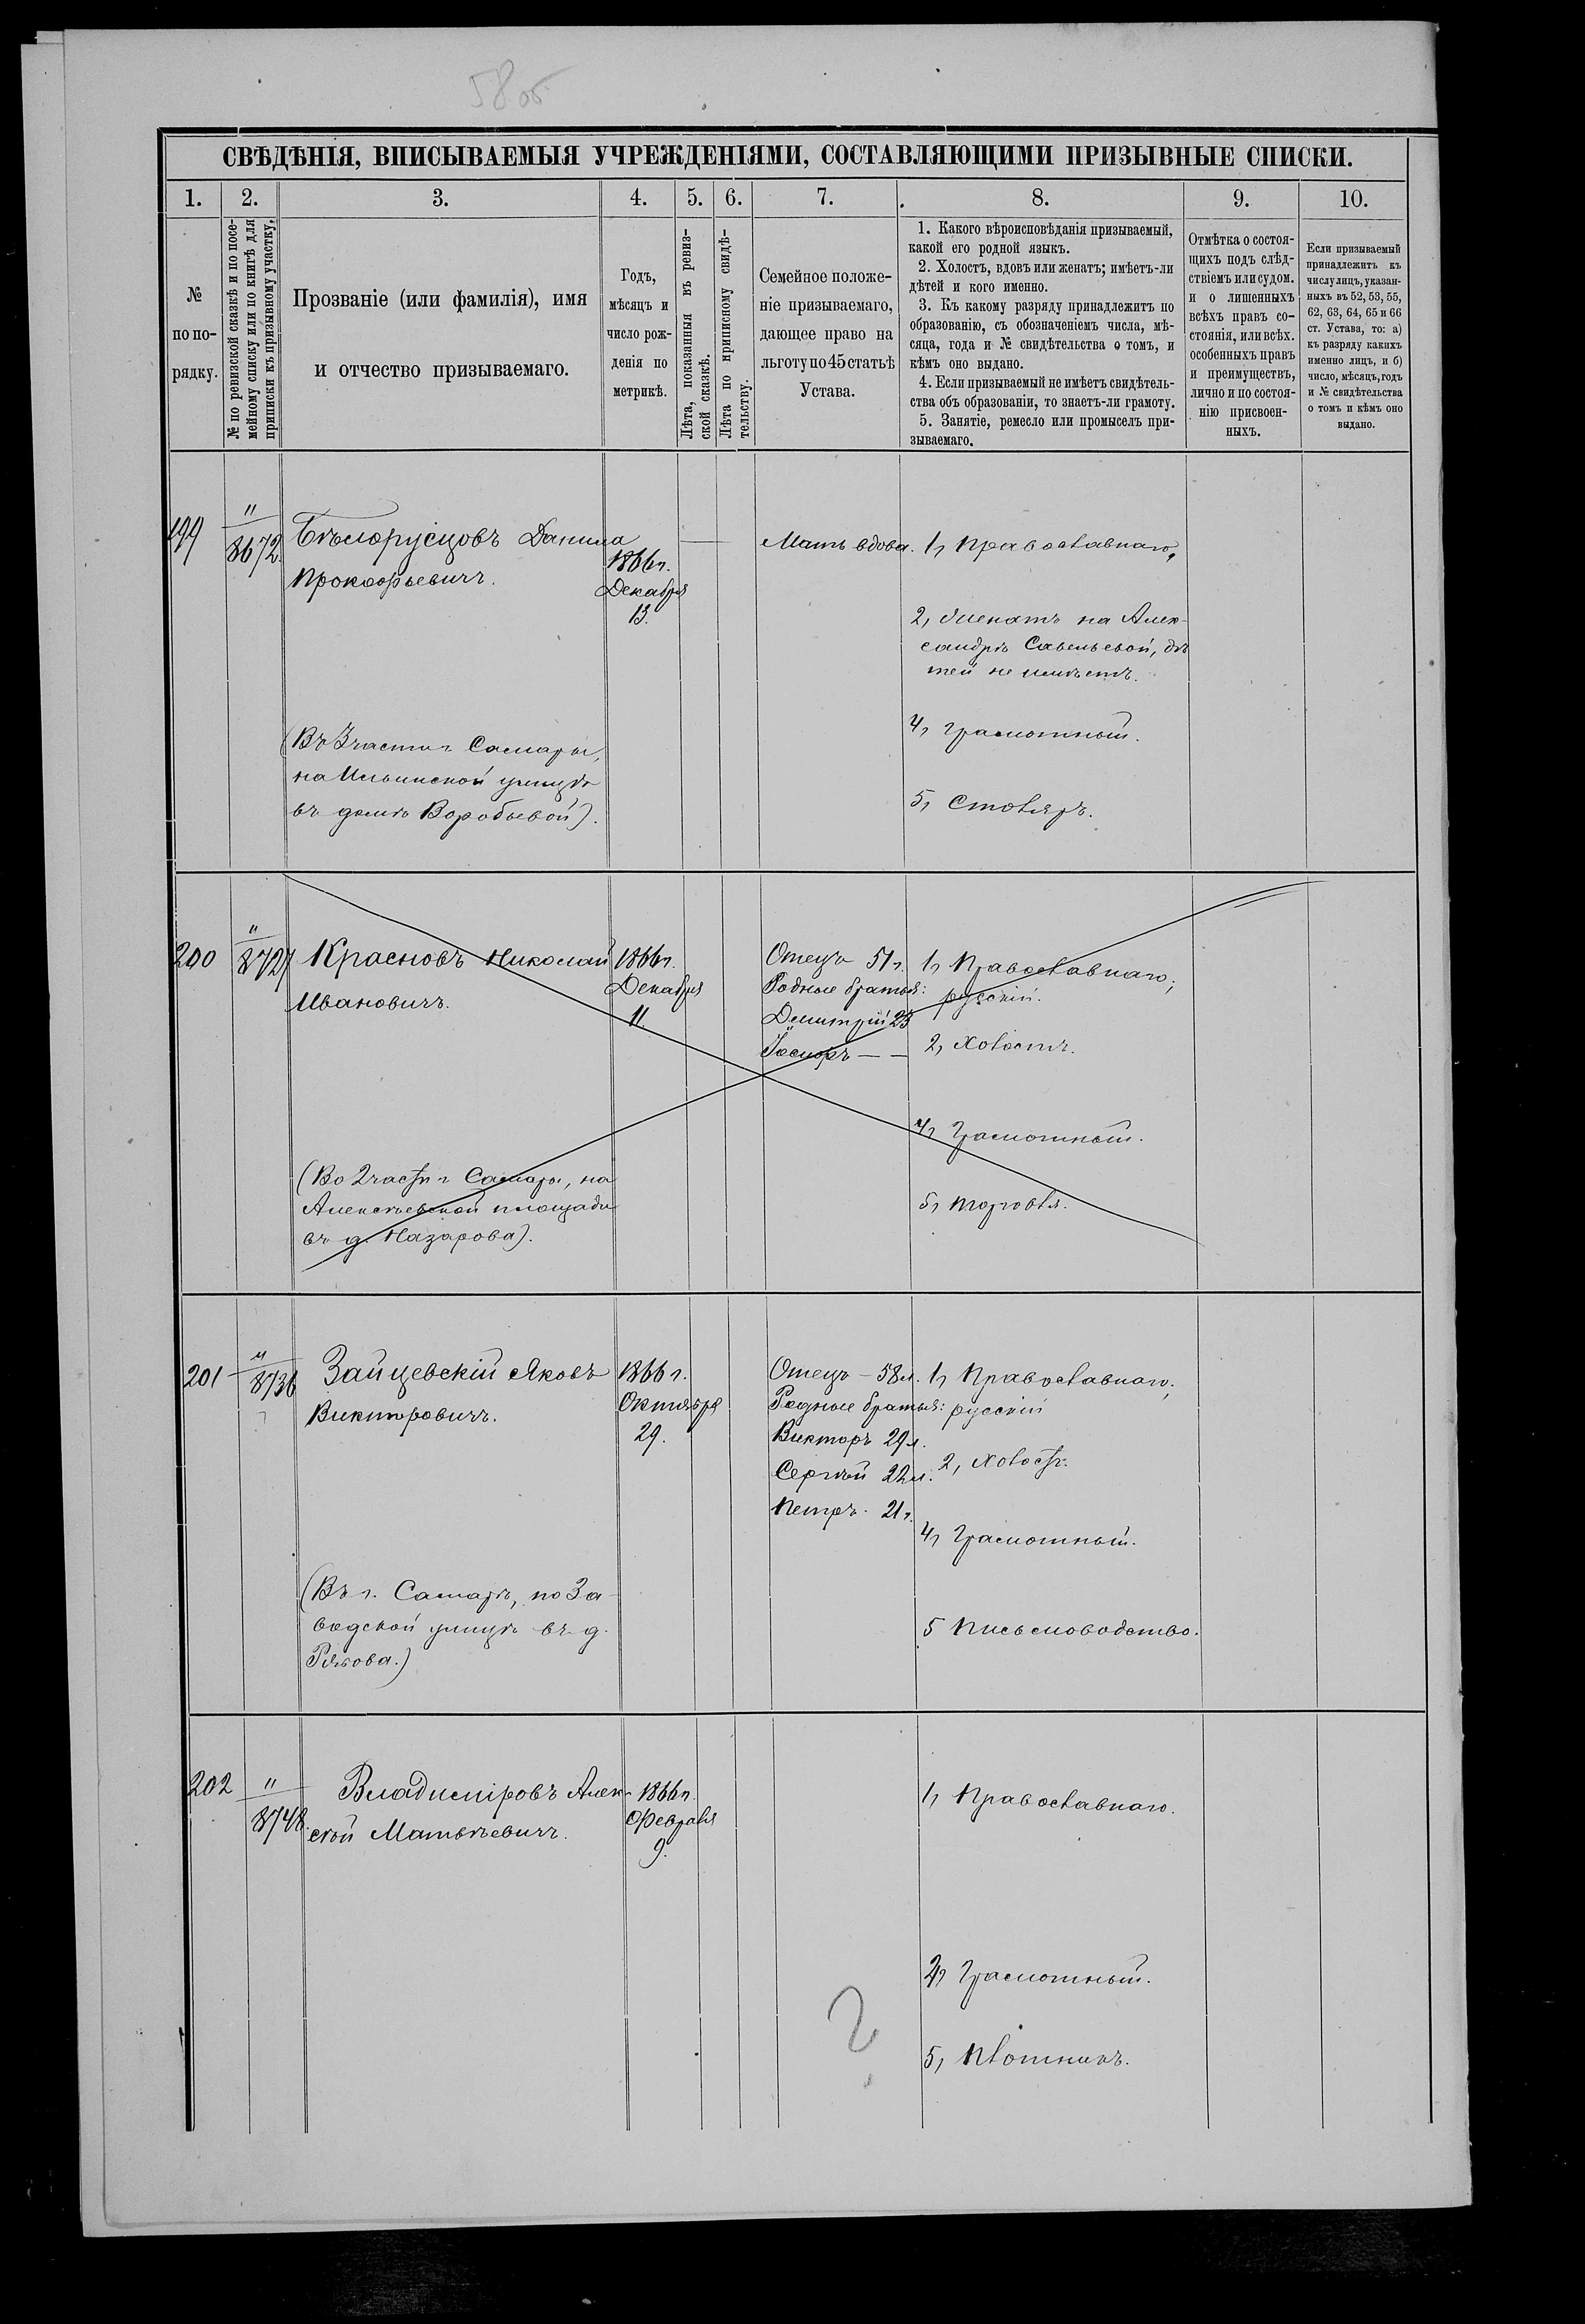 58 об
СВѢДѢНІЯ, ВПИСЫВАЕМЫЯ УЧРЕЖДЕНІЯМИ, СОСТАВЛЯЮЩИМИ ПРИЗЫВНЫЕ СПИСКИ.
1. 2. 3. 4. 5. 6. 7. 8. 9. 10.
№
по по-
рядку.
№ по ревизской сказкѣ и по посе-
мейному списку или по книгѣ для
приписки къ призывному участку.
Прозваніе (или фамилія), имя
и отчество призываемаго.
Годъ,
мѣсяцъ и
число рож-
денія по
метрикѣ.
Лѣта, показанныя въ ревиз-
ской сказкѣ.
Лѣта по приписному свидѣ-
тельству.
Семейное положе-
ніе призываемаго,
дающее право на
льготу по 45 статьѣ
Устава.
1. Какого вѣроисповѣданія призываемый,
какой его родной языкъ.
2. Холостъ, вдовъ или женатъ; имѣетъ-ли
дѣтей и кого именно.
3. Къ какому разряду принадлежитъ по
образованію, съ обозначеніемъ числа, мѣ-
сяца, года и № свидѣтельства о томъ, и
кѣмъ оно выдано.
4. Если призываемый не имѣетъ свидѣтель-
ства объ образованіи, то знаетъ-ли грамоту.
5. Занятіе, ремесло или промыселъ при-
зываемаго.
Отмѣтка о состоя-
щихъ подъ слѣд-
ствіемъ или судом.
и о лишенныхъ
всѣхъ правъ со-
стоянія, или всѣх.
особенныхъ правъ
и преимуществъ,
лично и по состоя-
нію присвоен-
ныхъ.
Если призываемый
принадлежитъ къ
числу лицъ, указан-
ныхъ въ 52, 53, 55,
62, 63, 64, 65 и 66
ст. Устава, то: а)
къ разряду какихъ
именно лицъ, и б)
число, мѣсяцъ, годъ
и № свидѣтельства
о томъ и кѣмъ оно
выдано.
199
"
8672.
Бѣлорусцовъ Данила
Прокофьевичъ.
1866 г.
Декабря
13.
(Въ 3 части г. Самары,
на Ильинской улицѣ
въ домѣ Воробьевой).
Мать вдова.
1, Православнаго,
2, Женатъ на Алек-
сандрѣ Савельевой, дѣ
тей не имѣетъ.
4, Грамотный.
5, Столяръ.
200
"
8727
Красновъ Николай
Ивановичъ.
1866 г.
Декабря
11.
(Во 2 части г. Самары, на
Алексѣевской площади
въ д. Назарова).
Отецъ 51 г.
Родные братья:
Дмитрій 23
— —
1, Православнаго;
русскій.
2, Холостъ.
4, Грамотный.
5, Торговля.
201
"
8736
Зайцевскій Яковъ
Викторовичъ.
1866 г.
Октября
29.
(Въ г. Самарѣ, по За-
водской улицѣ въ д.
Отецъ – 58 л.
Родные братья:
Викторъ 29 л.
Сергѣй 22 л.
Петръ 21 г.
1, Православнаго;
русскій
2, Холостъ.
4, Грамотный.
5 Письмоводство.
202
"
8748.
Владиміровъ Алек-
сѣй Матвѣевичъ.
1866 г.
Февраля
9.
?
1, Православнаго.
4, Грамотный.
5, Плотникъ.